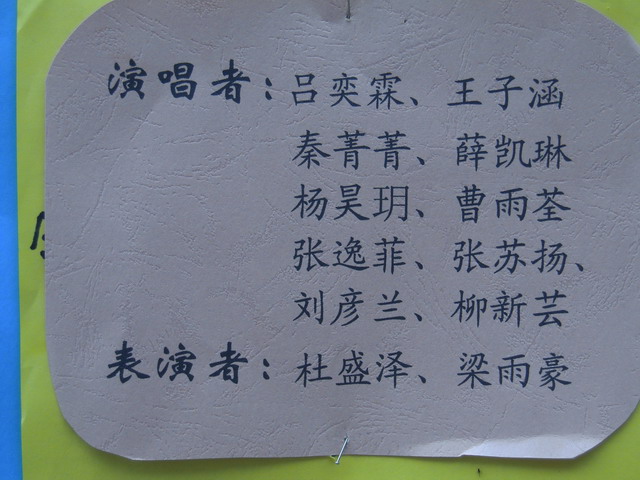 演唱者:吕奕霖、王子涵
秦菁菁、薛凯琳
杨昊玥、曹雨荃
张逸菲、张苏扬、
刘彦兰、柳新芸
表演者:杜盛泽、梁雨豪